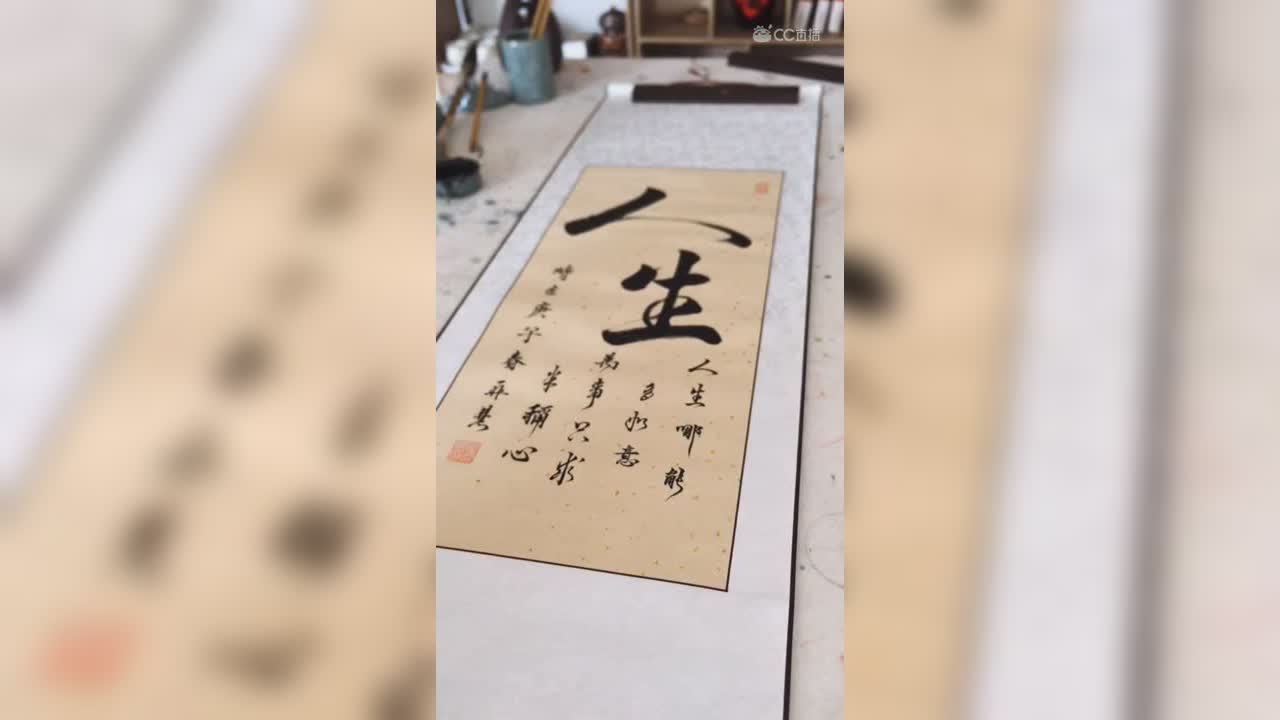 CC直播
人生
人生哪能
多如意
万事只求
半称心
时在庚子春